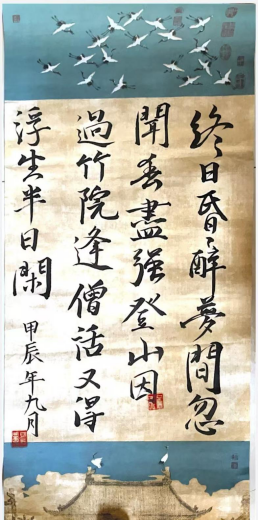 終日昏醉夢間忽
聞春盡強登山因
過竹院逢僧話又得
浮生半日閑
甲辰年九月